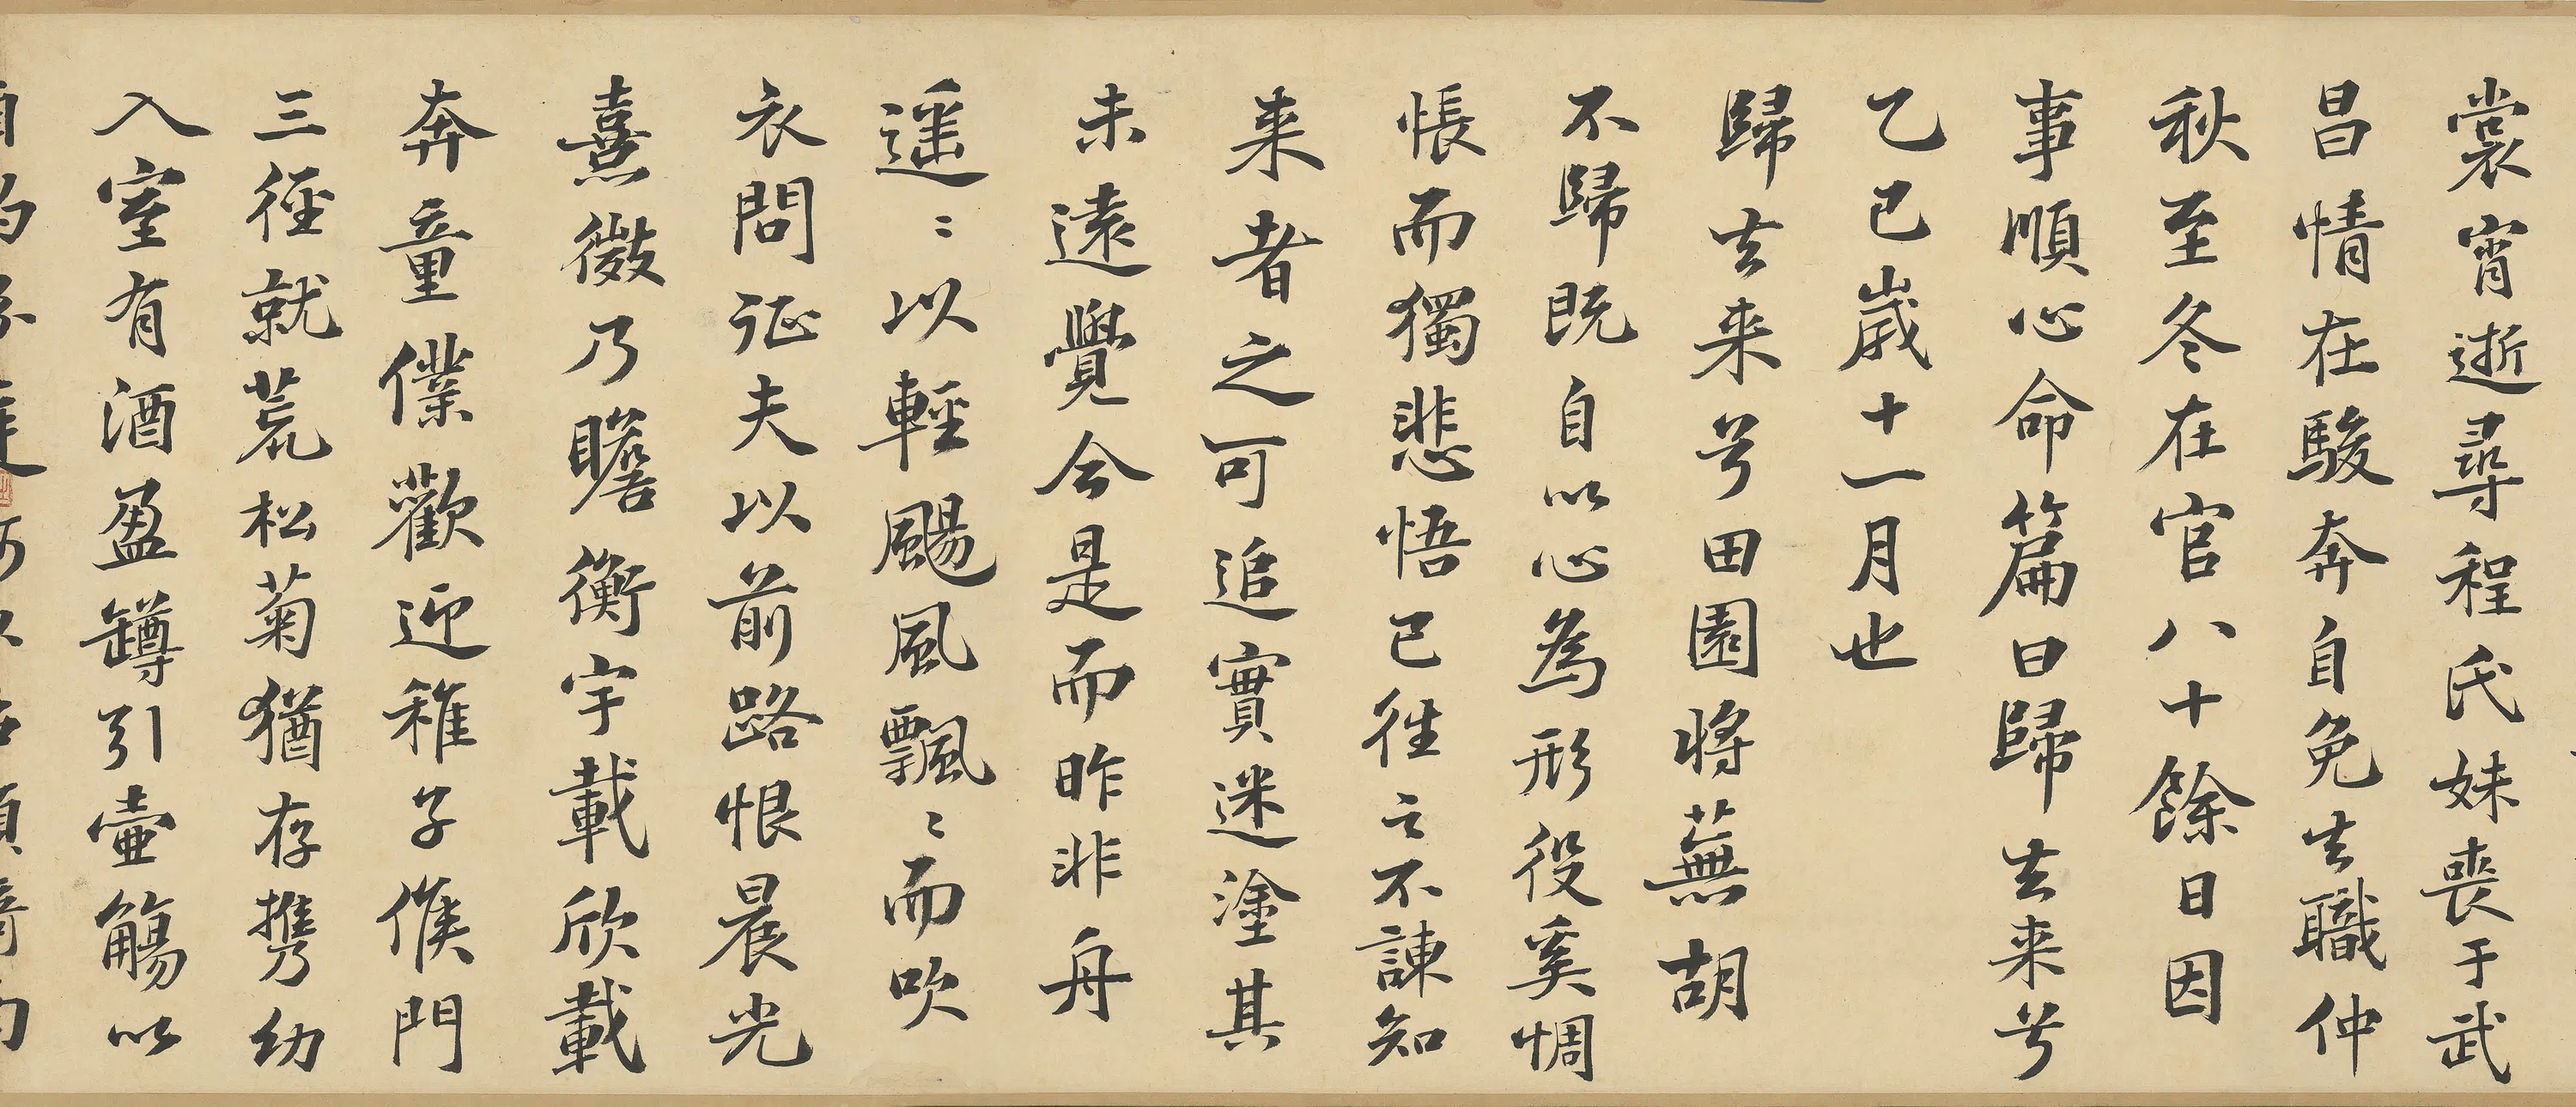 裳宵逝尋程氏妹喪于武
昌情在駿奔自免去職仲
秋至冬在官八十餘日因
事順心命篇曰歸去来兮
乙巳歲十一月也
歸去来兮田園將蕪胡
不歸既自以心為形役奚惆
悵而獨悲悟已往之不諫知
来者之可追實迷塗其
未遠覺今是而昨非舟
遥〻以輕颺風飄〻而吹
衣問征夫以前路恨晨光
熹微乃瞻衡宇載欣載
奔童僕歡迎稚子候門
三徑就荒松菊猶存携幼
入室有酒盈罇引壷觴以